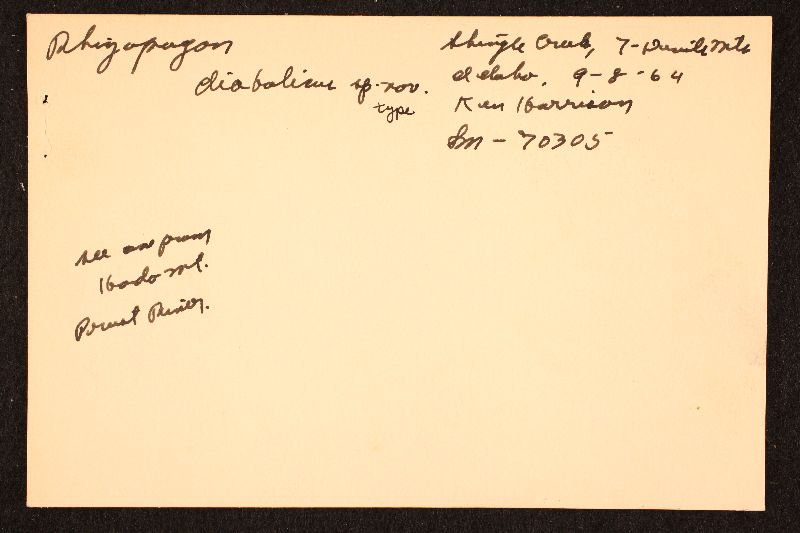 Rhizopogon
diabolicus sp. nov.
type
Shingle Creek, 7-Devils Mts
Idaho, 9-8-64
Ken Harrison
Sm-70305
see one from
Hoodo Mt.
Priest River.